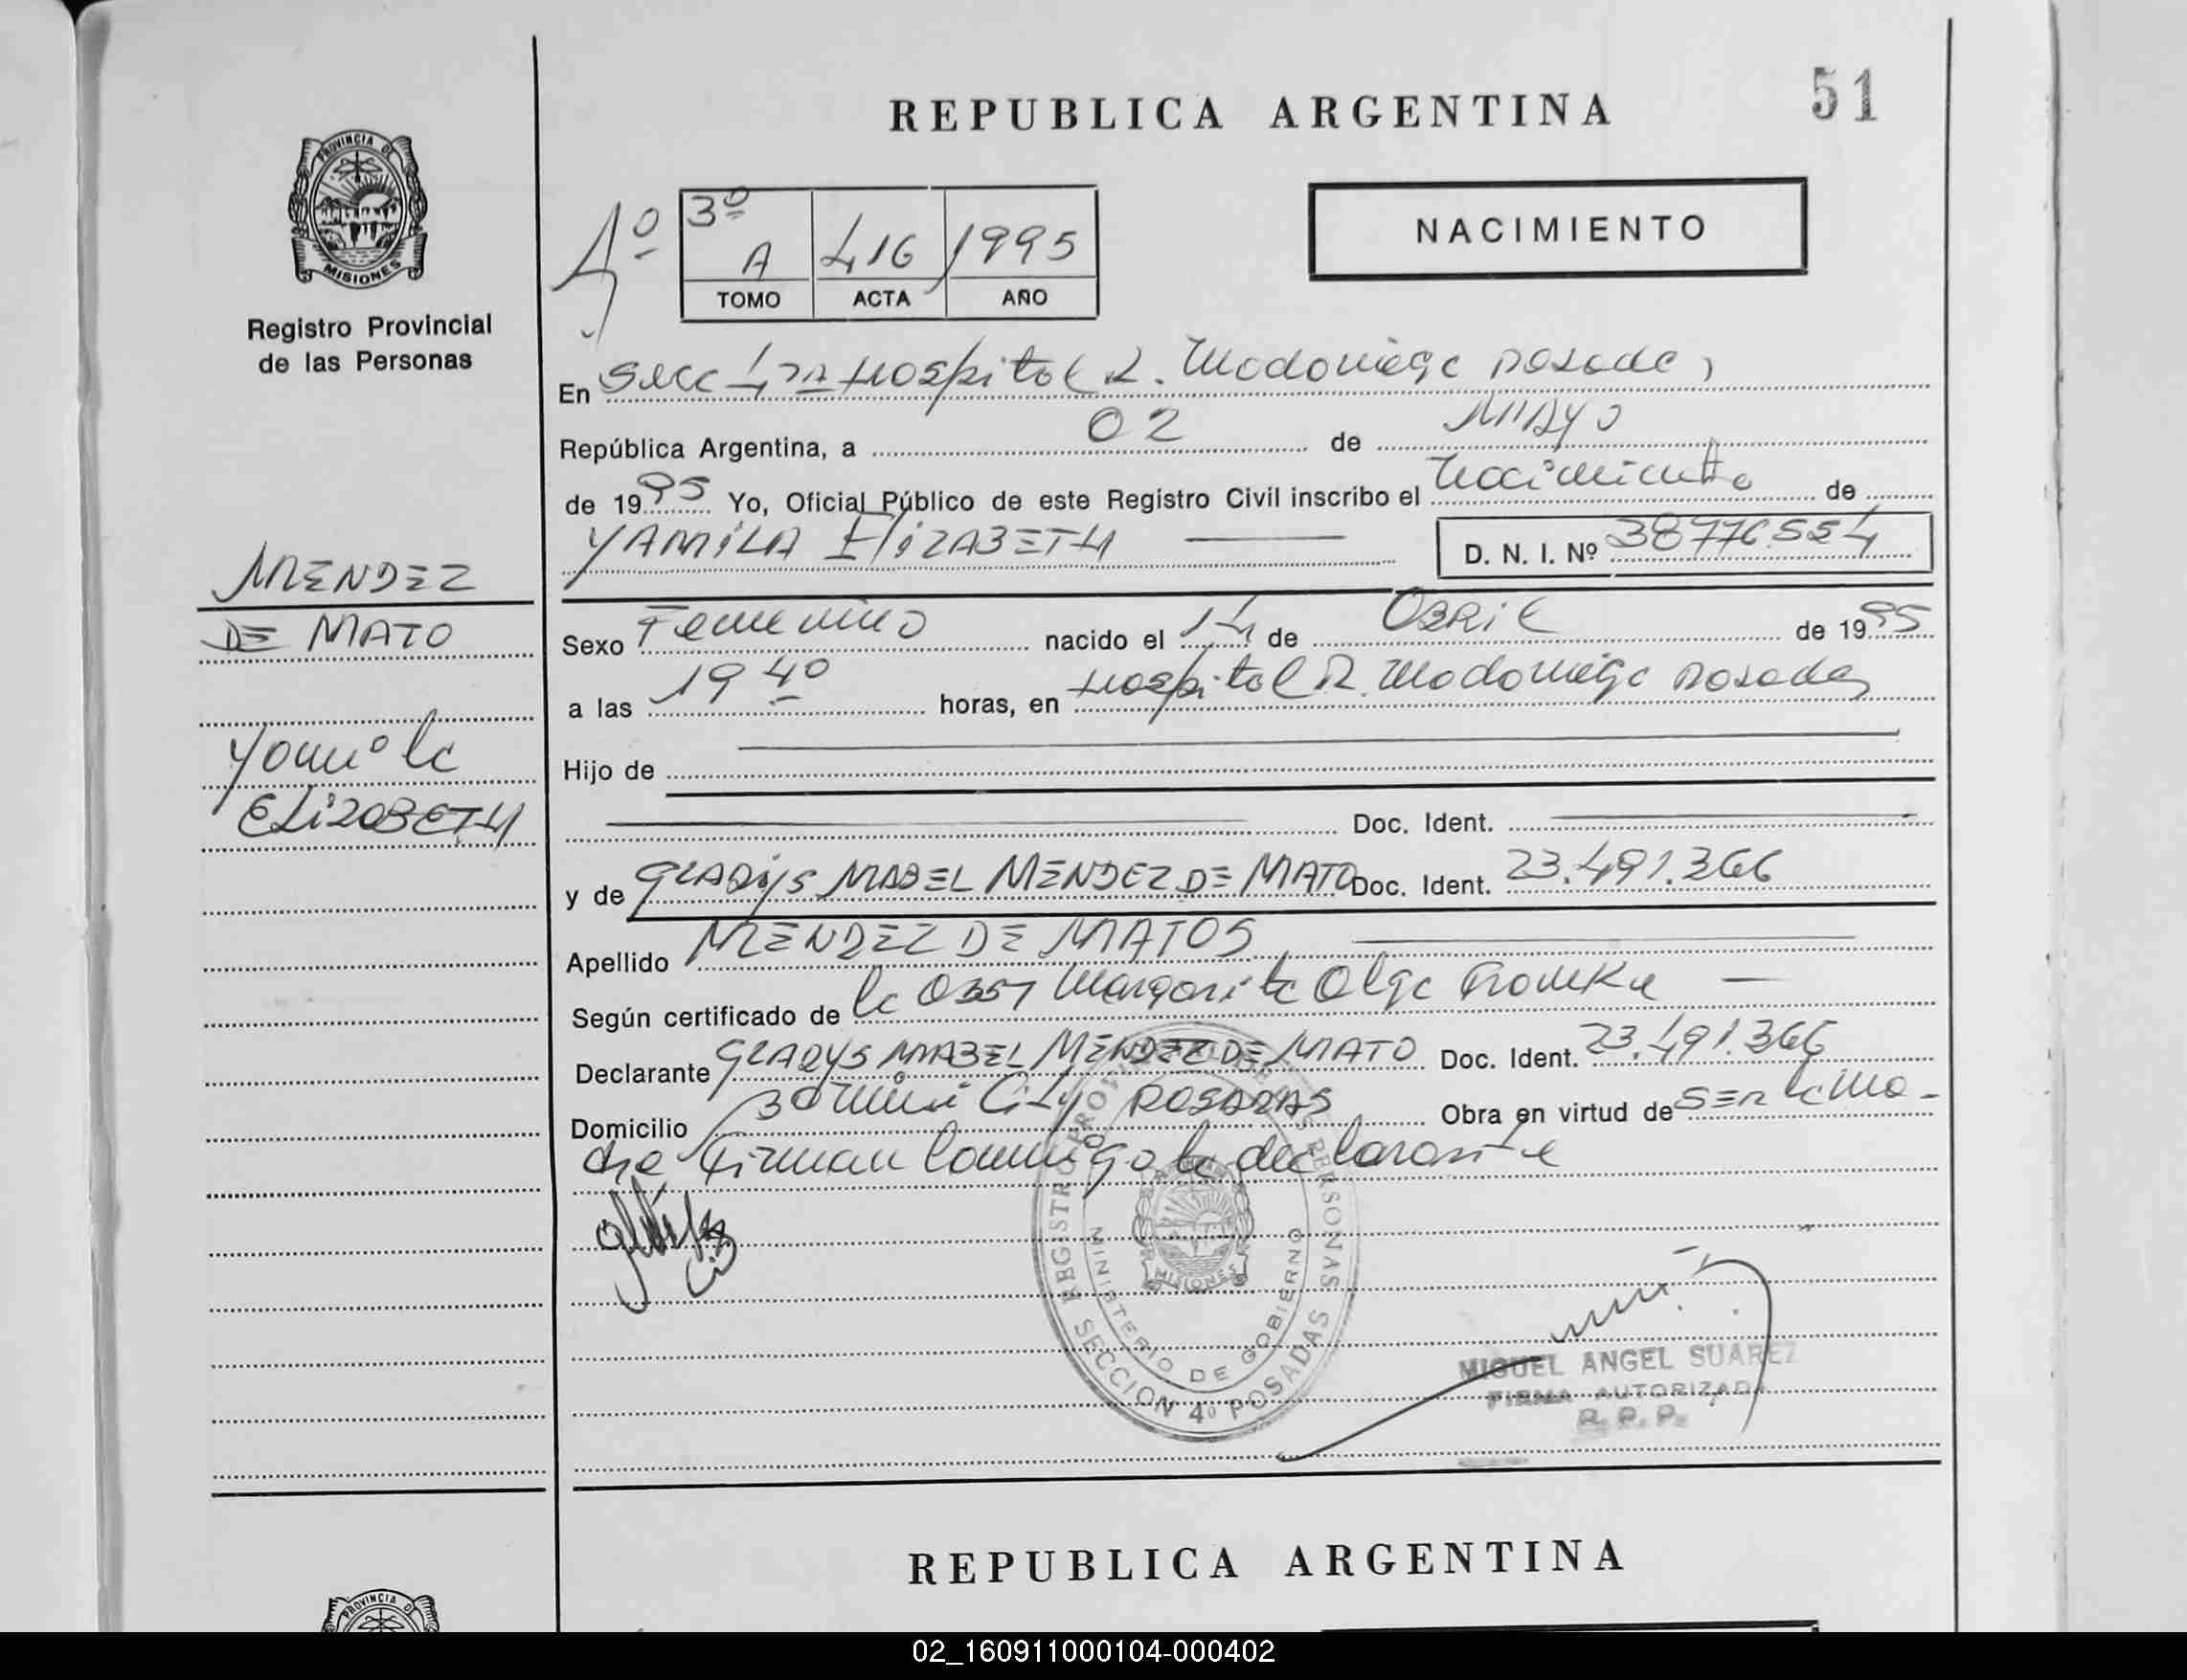 51
REPUBLICA ARGENTINA
NACIMIENTO
4º
3º A 416 1995
TOMO ACTA AÑO
PROVINCIA DE
MISIONES
Registro Provincial
de las Personas
En Secc 4ta Hospital R. Madariaga Posadas
República Argentina, a 02 de MAYO
de 1995 Yo, Oficial Público de este Registro Civil inscribo el nacimiento de
YAMILA ElizABETH D. N. I. Nº 38776554
MENDEZ
DE MATO
Yamila
ELizaBETH
Sexo Femenino nacido el 14 de ABRiL de 1995
a las 19 40 horas, en Hospital R. Madariaga Posadas
Hijo de
Doc. Ident.
y de GLADYS MABEL MENDEZ DE MATO Doc. Ident. 23.491.366
Apellido MENDEZ DE MATOS
Según certificado de la Obst Margarita Olga
Declarante GLADYS MABEL MENDEZ DE MATO Doc. Ident. 23.491.366
Domicilio City POSADAS Obra en virtud de SER la ma-
dre Firman Conmigo la declarante
REGISTRO PROVINCIAL DE LAS PERSONAS
MINISTERIO DE GOBIERNO
MISIONES
SECCION 4º POSADAS
MIGUEL ANGEL SUAREZ
FIRMA AUTORIZADA
R. P. P.
REPUBLICA ARGENTINA
PROVINCIA D
02_160911000104-000402